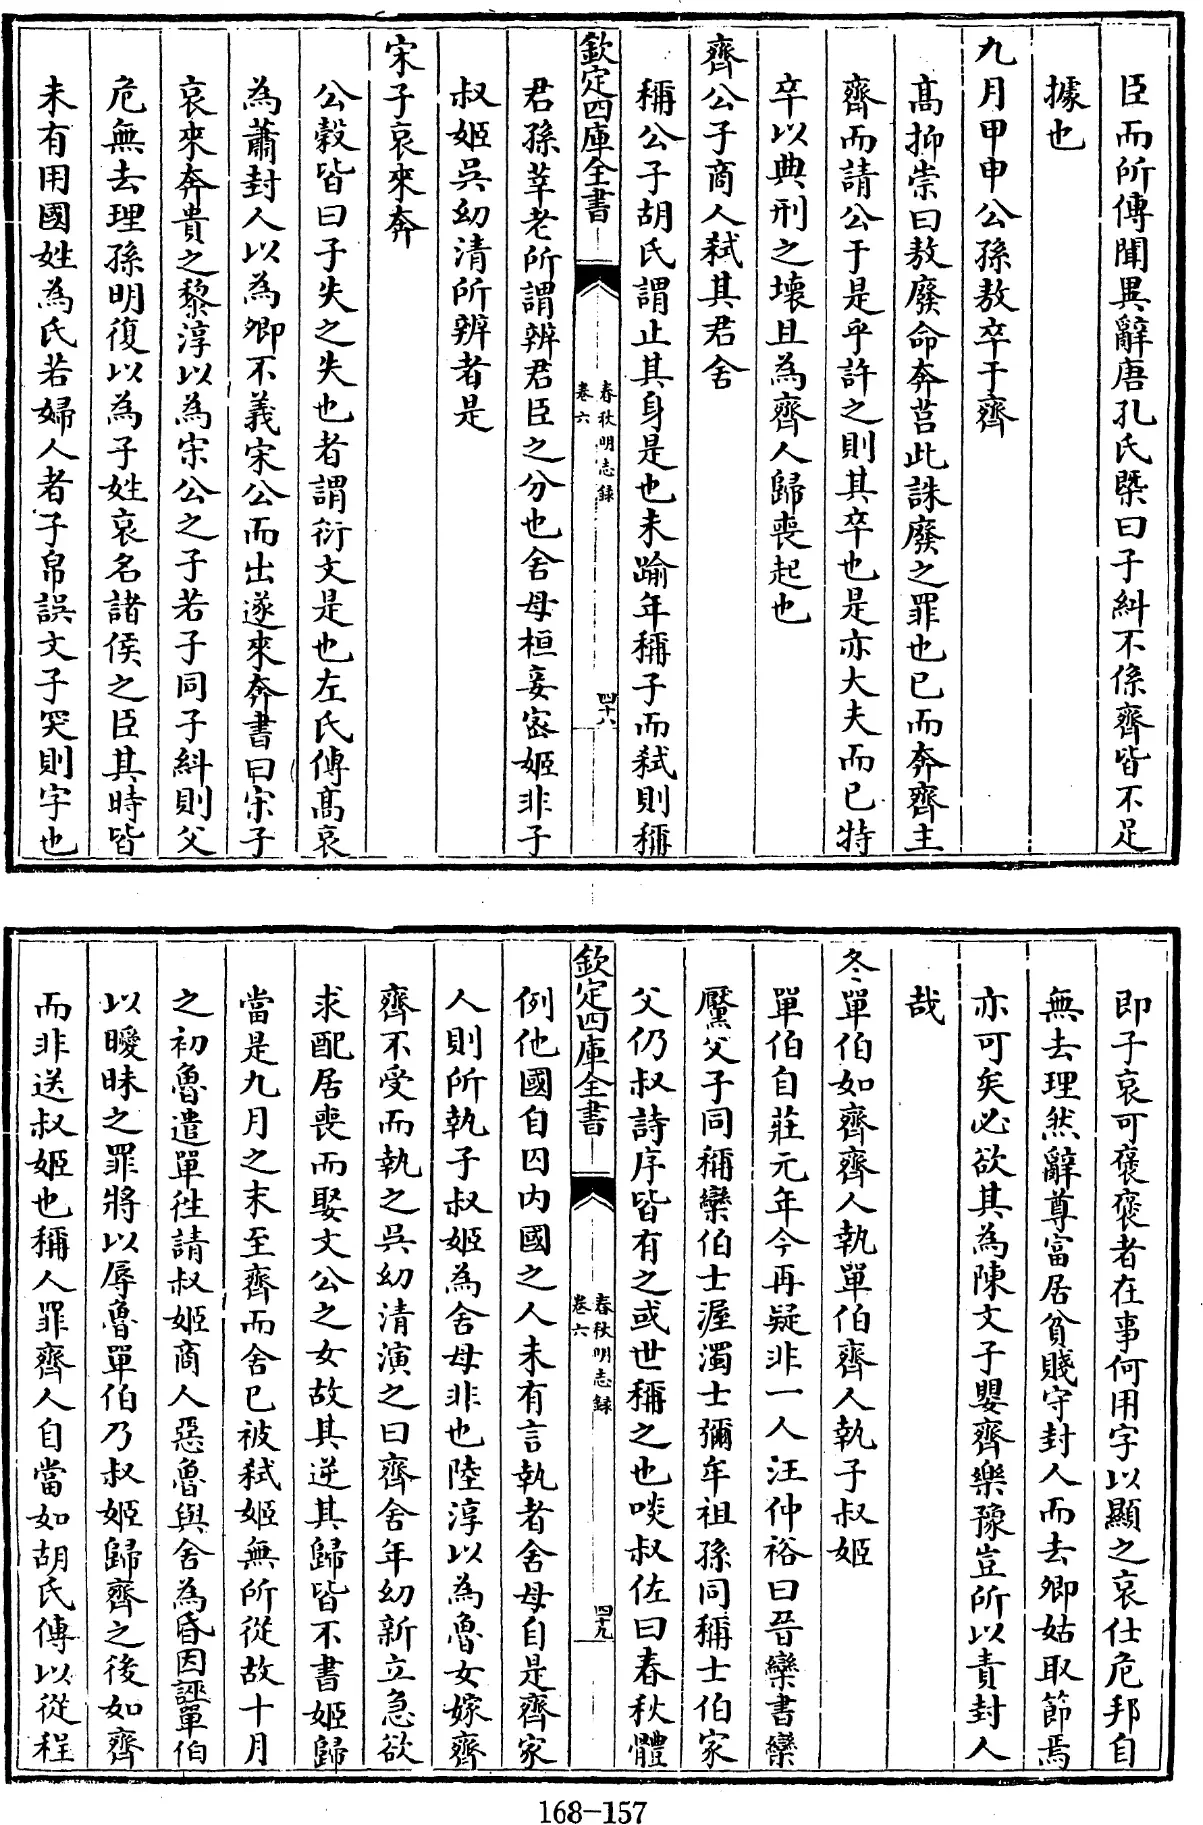 臣而所傳聞異辭唐孔氏槩曰子糾不係齊皆不足
據也
九月甲申公孫敖卒于齊
高抑崇曰敖廢命奔莒此誅廢之罪也已而奔齊主
齊而請公于是乎許之則其卒也是亦大夫而已特
卒以典刑之壞且為齊人歸喪起也
齊公子商人弒其君舍
稱公子胡氏謂止其身是也未踰年稱子而弒則稱
欽定四庫全書
春秋明志録
卷六
四十八
君孫莘老所謂辨君臣之分也舍母桓妾密姬非子
叔姬吳幼清所辨者是
宋子哀來奔
公穀皆曰子失之失也者謂衍文是也左氏傳高哀
為蕭封人以為卿不義宋公而出遂來奔書曰宋子
哀來奔貴之黎淳以為宋公之子若子同子糾則父
危無去理孫明復以為子姓哀名諸侯之臣其時皆
未有用國姓為氏若婦人者子帛誤文子突則字也
即子哀可褒褒者在事何用字以顯之哀仕危邦自
無去理然辭尊富居貧賤守封人而去卿姑取節焉
亦可矣必欲其為陳文子嬰齊樂豫豈所以責封人
哉
冬單伯如齊齊人執單伯齊人執子叔姬
單伯自莊元年今再疑非一人汪仲裕曰晉欒書欒
黶父子同稱欒伯士渥濁士彌牟祖孫同稱士伯家
父仍叔詩序皆有之或世稱之也啖叔佐曰春秋體
欽定四庫全書
春秋明志録
卷六
四十九
例他國自囚內國之人未有言執者舍母自是齊家
人則所執子叔姬為舍母非也陸淳以為魯女嫁齊
齊不受而執之吳幼清演之曰齊舍年幼新立急欲
求配居喪而娶文公之女故其逆其歸皆不書姬歸
當是九月之末至齊而舍已被弒姬無所從故十月
之初魯遣單徃請叔姬商人惡魯與舍為昏因誣單伯
以曖昧之罪將以辱魯單伯乃叔姬歸齊之後如齊
而非送叔姬也稱人罪齊人自當如胡氏傳以從程
168-157